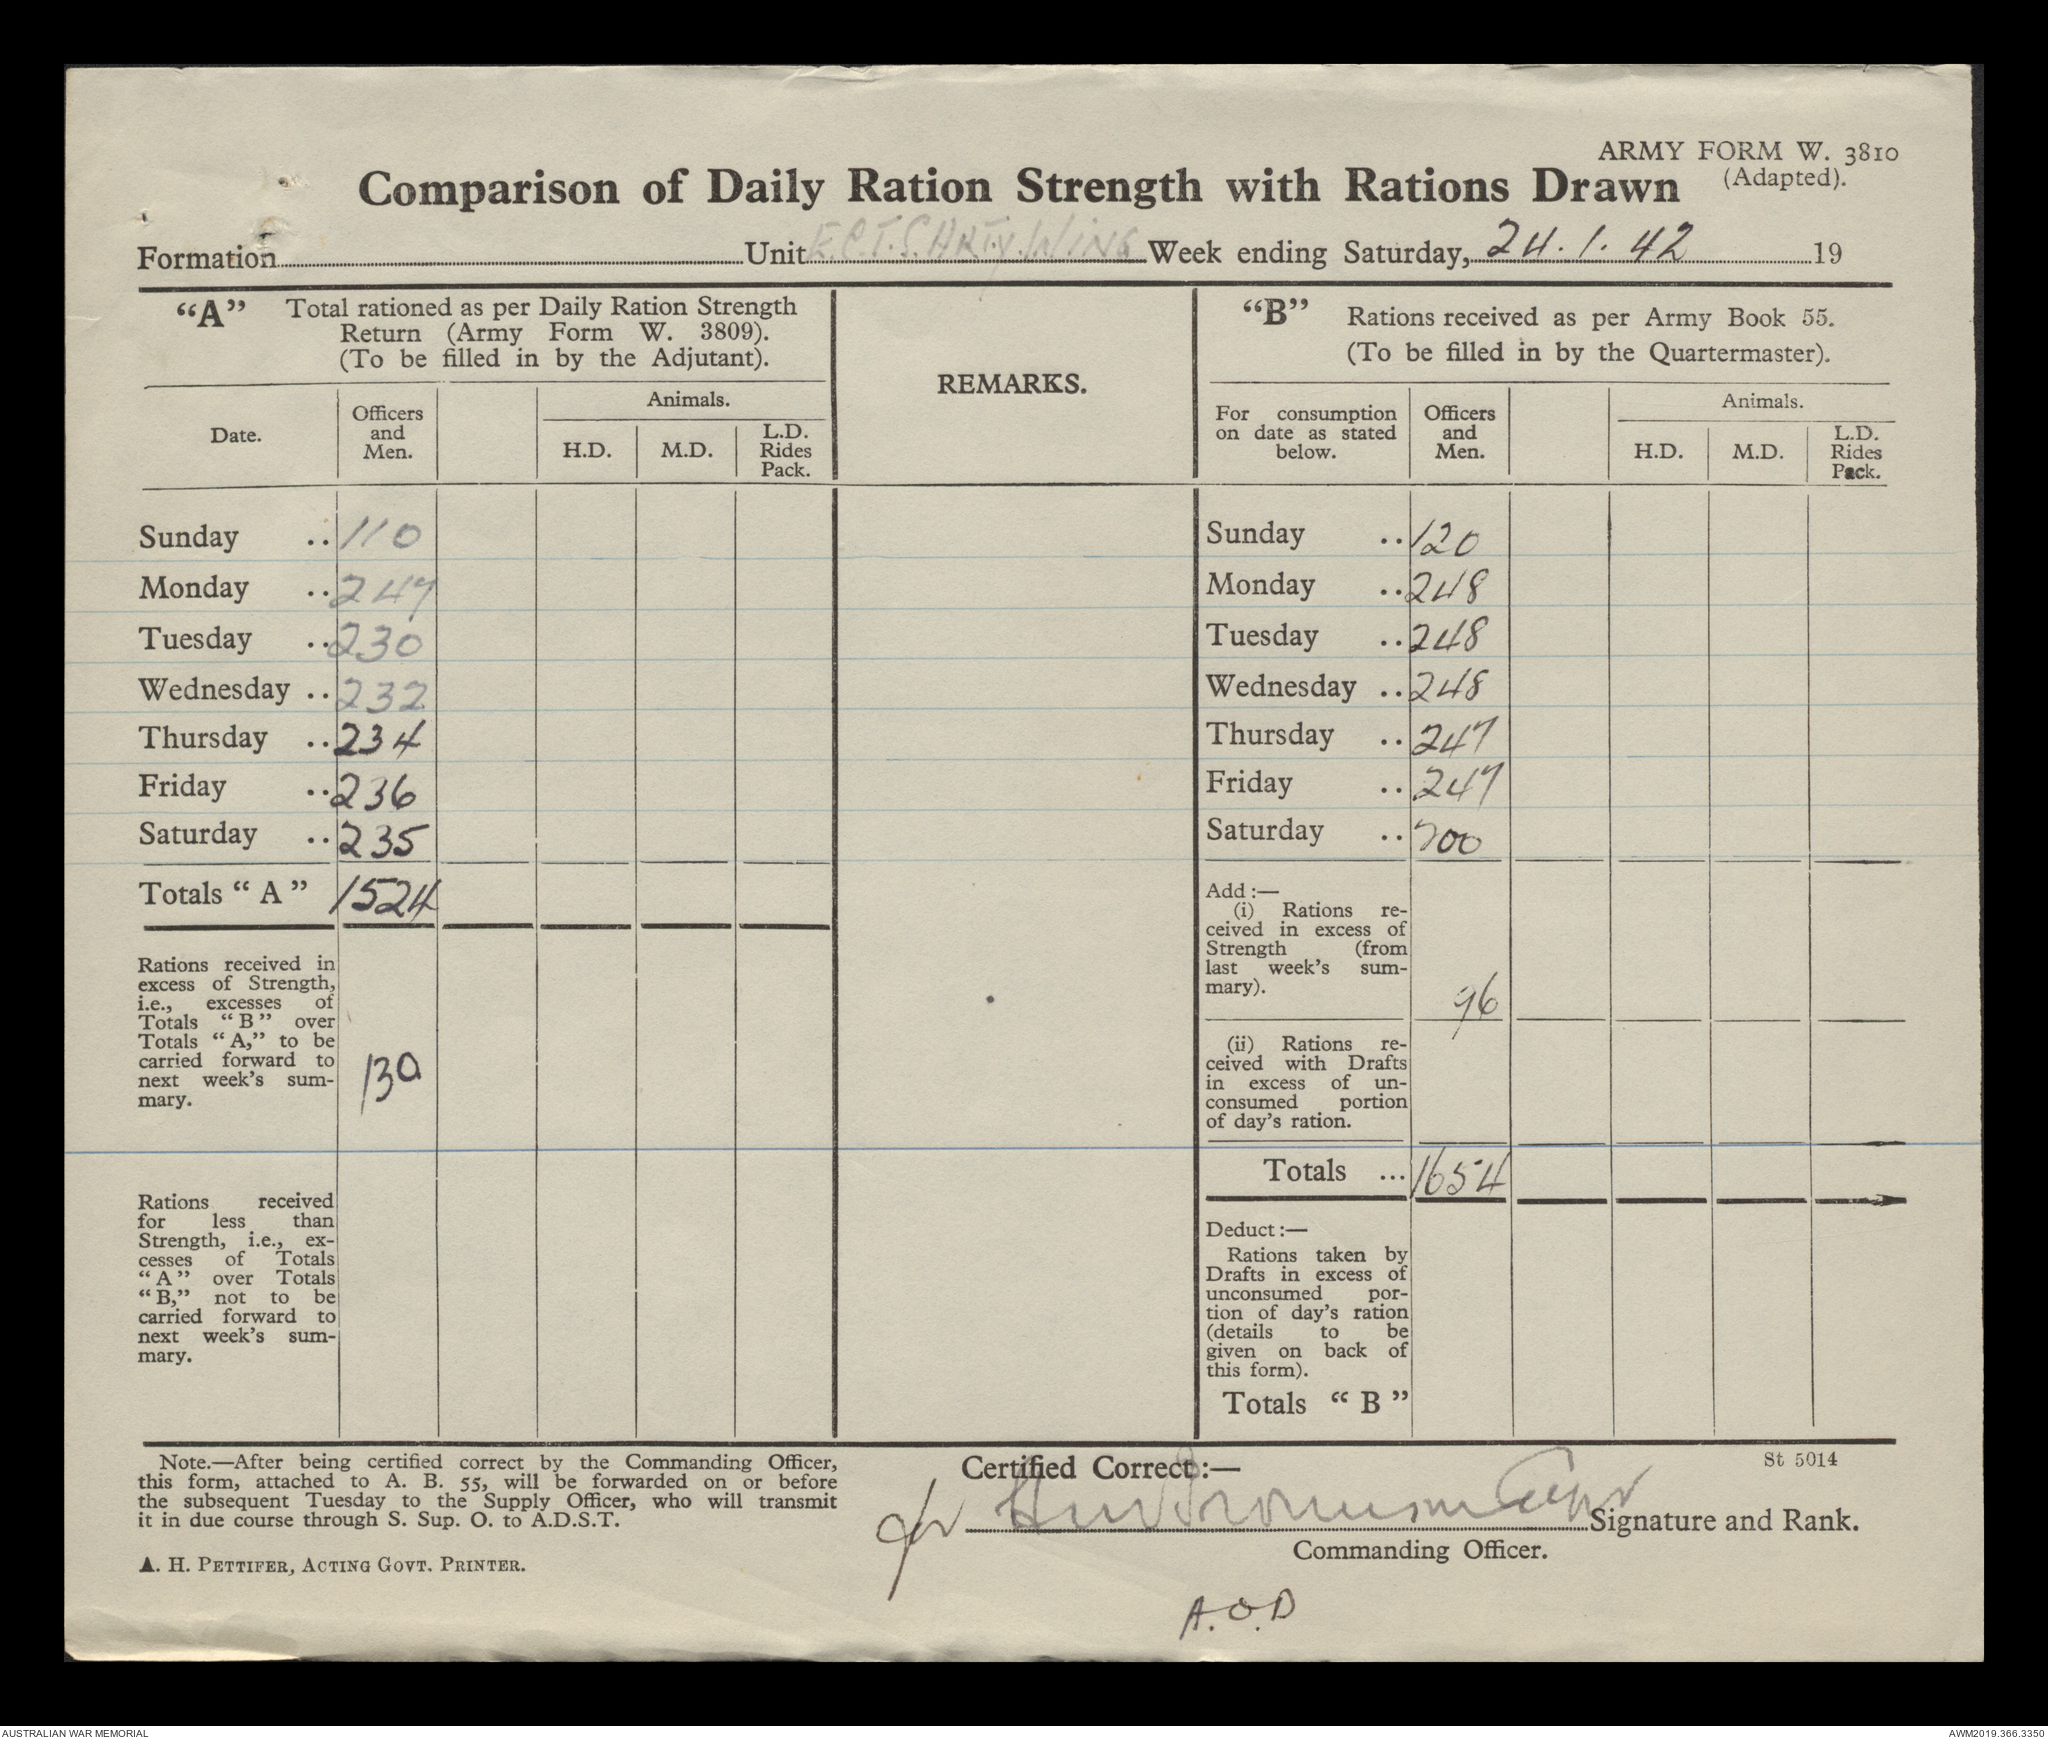 ARMY FORM W. 3810
(Adapted).
Comparison of Daily Ration Strength with Rations Drawn
Formation Unit E.C.T.S. ARTY. WING Week ending Saturday, 24.1.42 19
"A" Total rationed as per Daily Ration Strength
Return (Army Form W. 3809).
(To be filled in by the Adjutant).
Date.
Officers
and
Men.
Animals.
H.D.
M.D.
L.D.
Rides
Pack.
Sunday .. 110
Monday .. 247
Tuesday .. 230
Wednesday .. 232
Thursday .. 234
Friday .. 236
Saturday .. 235
Totals "A" 1524
Rations received in
excess of Strength,
i.e., excesses of
Totals "B" over
Totals "A," to be
carried forward to
next week's sum-
mary.
130
Rations received
for less than
Strength, i.e., ex-
cesses of Totals
"A" over Totals
"B," not to be
carried forward to
next week's sum-
mary.
REMARKS.
"B" Rations received as per Army Book 55.
(To be filled in by the Quartermaster).
For consumption
on date as stated
below.
Officers
and
Men.
Animals.
H.D.
M.D.
L.D.
Rides
Pack.
Sunday .. 120
Monday .. 248
Tuesday .. 248
Wednesday .. 248
Thursday .. 247
Friday .. 247
Saturday .. 200
Add :—
(i) Rations re-
ceived in excess of
Strength (from
last week's sum-
mary).
96
(ii) Rations re-
ceived with Drafts
in excess of un-
consumed portion
of day's ration.
Totals ... 1654
Deduct :—
Rations taken by
Drafts in excess of
unconsumed por-
tion of day's ration
(details to be
given on back of
this form).
Totals "B"
Note.—After being certified correct by the Commanding Officer,
this form, attached to A. B. 55, will be forwarded on or before
the subsequent Tuesday to the Supply Officer, who will transmit
it in due course through S. Sup. O. to A.D.S.T.
A. H. PETTIFER, ACTING GOVT. PRINTER.
St 5014
Certified Correct :—
for Signature and Rank.
Commanding Officer.
A.O.D
AUSTRALIAN WAR MEMORIAL
AWM2019.366.3350